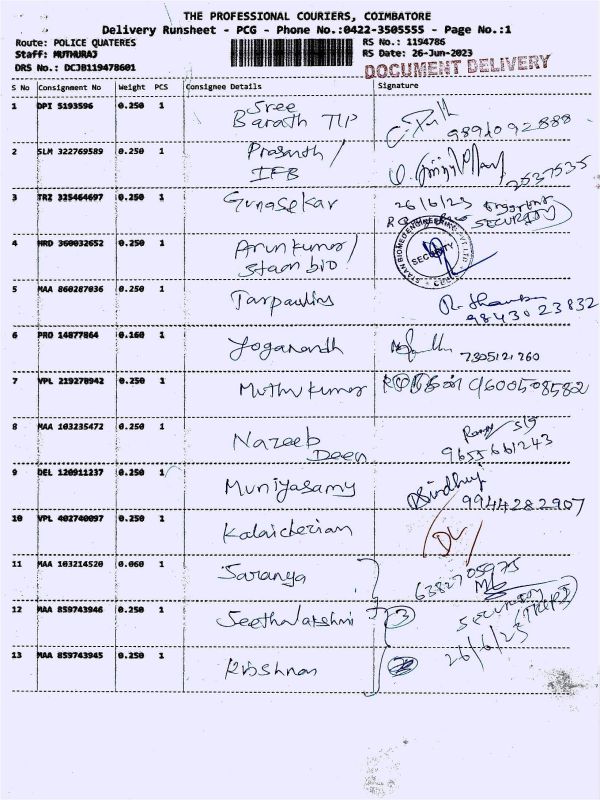 THE PROFESSIONAL COURIERS, COIMBATORE
Delivery Runsheet - PCG - Phone No.:0422-3505555 - Page No.:1
Route: POLICE QUATERES
RS No.: 1194786
Staff: MUTHURAJ
RS Date: 26-Jun-2023
DRS No.: DCJB119478601
DOCUMENT DELIVERY
S No Consignment No Weight PCS Consignee Details Signature
1 DPI 5193596 0.250 1 Sree
Barath TUP
9894092888
2 SLM 322769589 0.250 1 Prasanth /
IFB
2537535
3 TRZ 325464697 0.250 1 Gunasekar 26/6/23
SECURITY
4 HRD 360032652 0.250 1 Arunkumar/
Staan bio
STAAN BIOMED ENGINEERING PVT LTD
SECURITY
5 MAA 860287036 0.250 1 Tarpaulins
9843023832
6 PRO 14877864 0.160 1 Yoganandh 7305121260
7 VPL 219278942 0.250 1 Muthukumar 9600508582
8 MAA 103235472 0.250 1 Nazeeb
Deen
9655661243
9 DEL 120911237 0.250 1 Muniyasamy Sindhuj
9944282907
10 VPL 402740097 0.250 1 Kalaicherian DL
11 MAA 103214520 0.060 1 Saranya 6382705975
12 MAA 859743946 0.250 1 Seethalakshmi 3
SECURITY
26/6/23
13 MAA 859743945 0.250 1 Krishnan